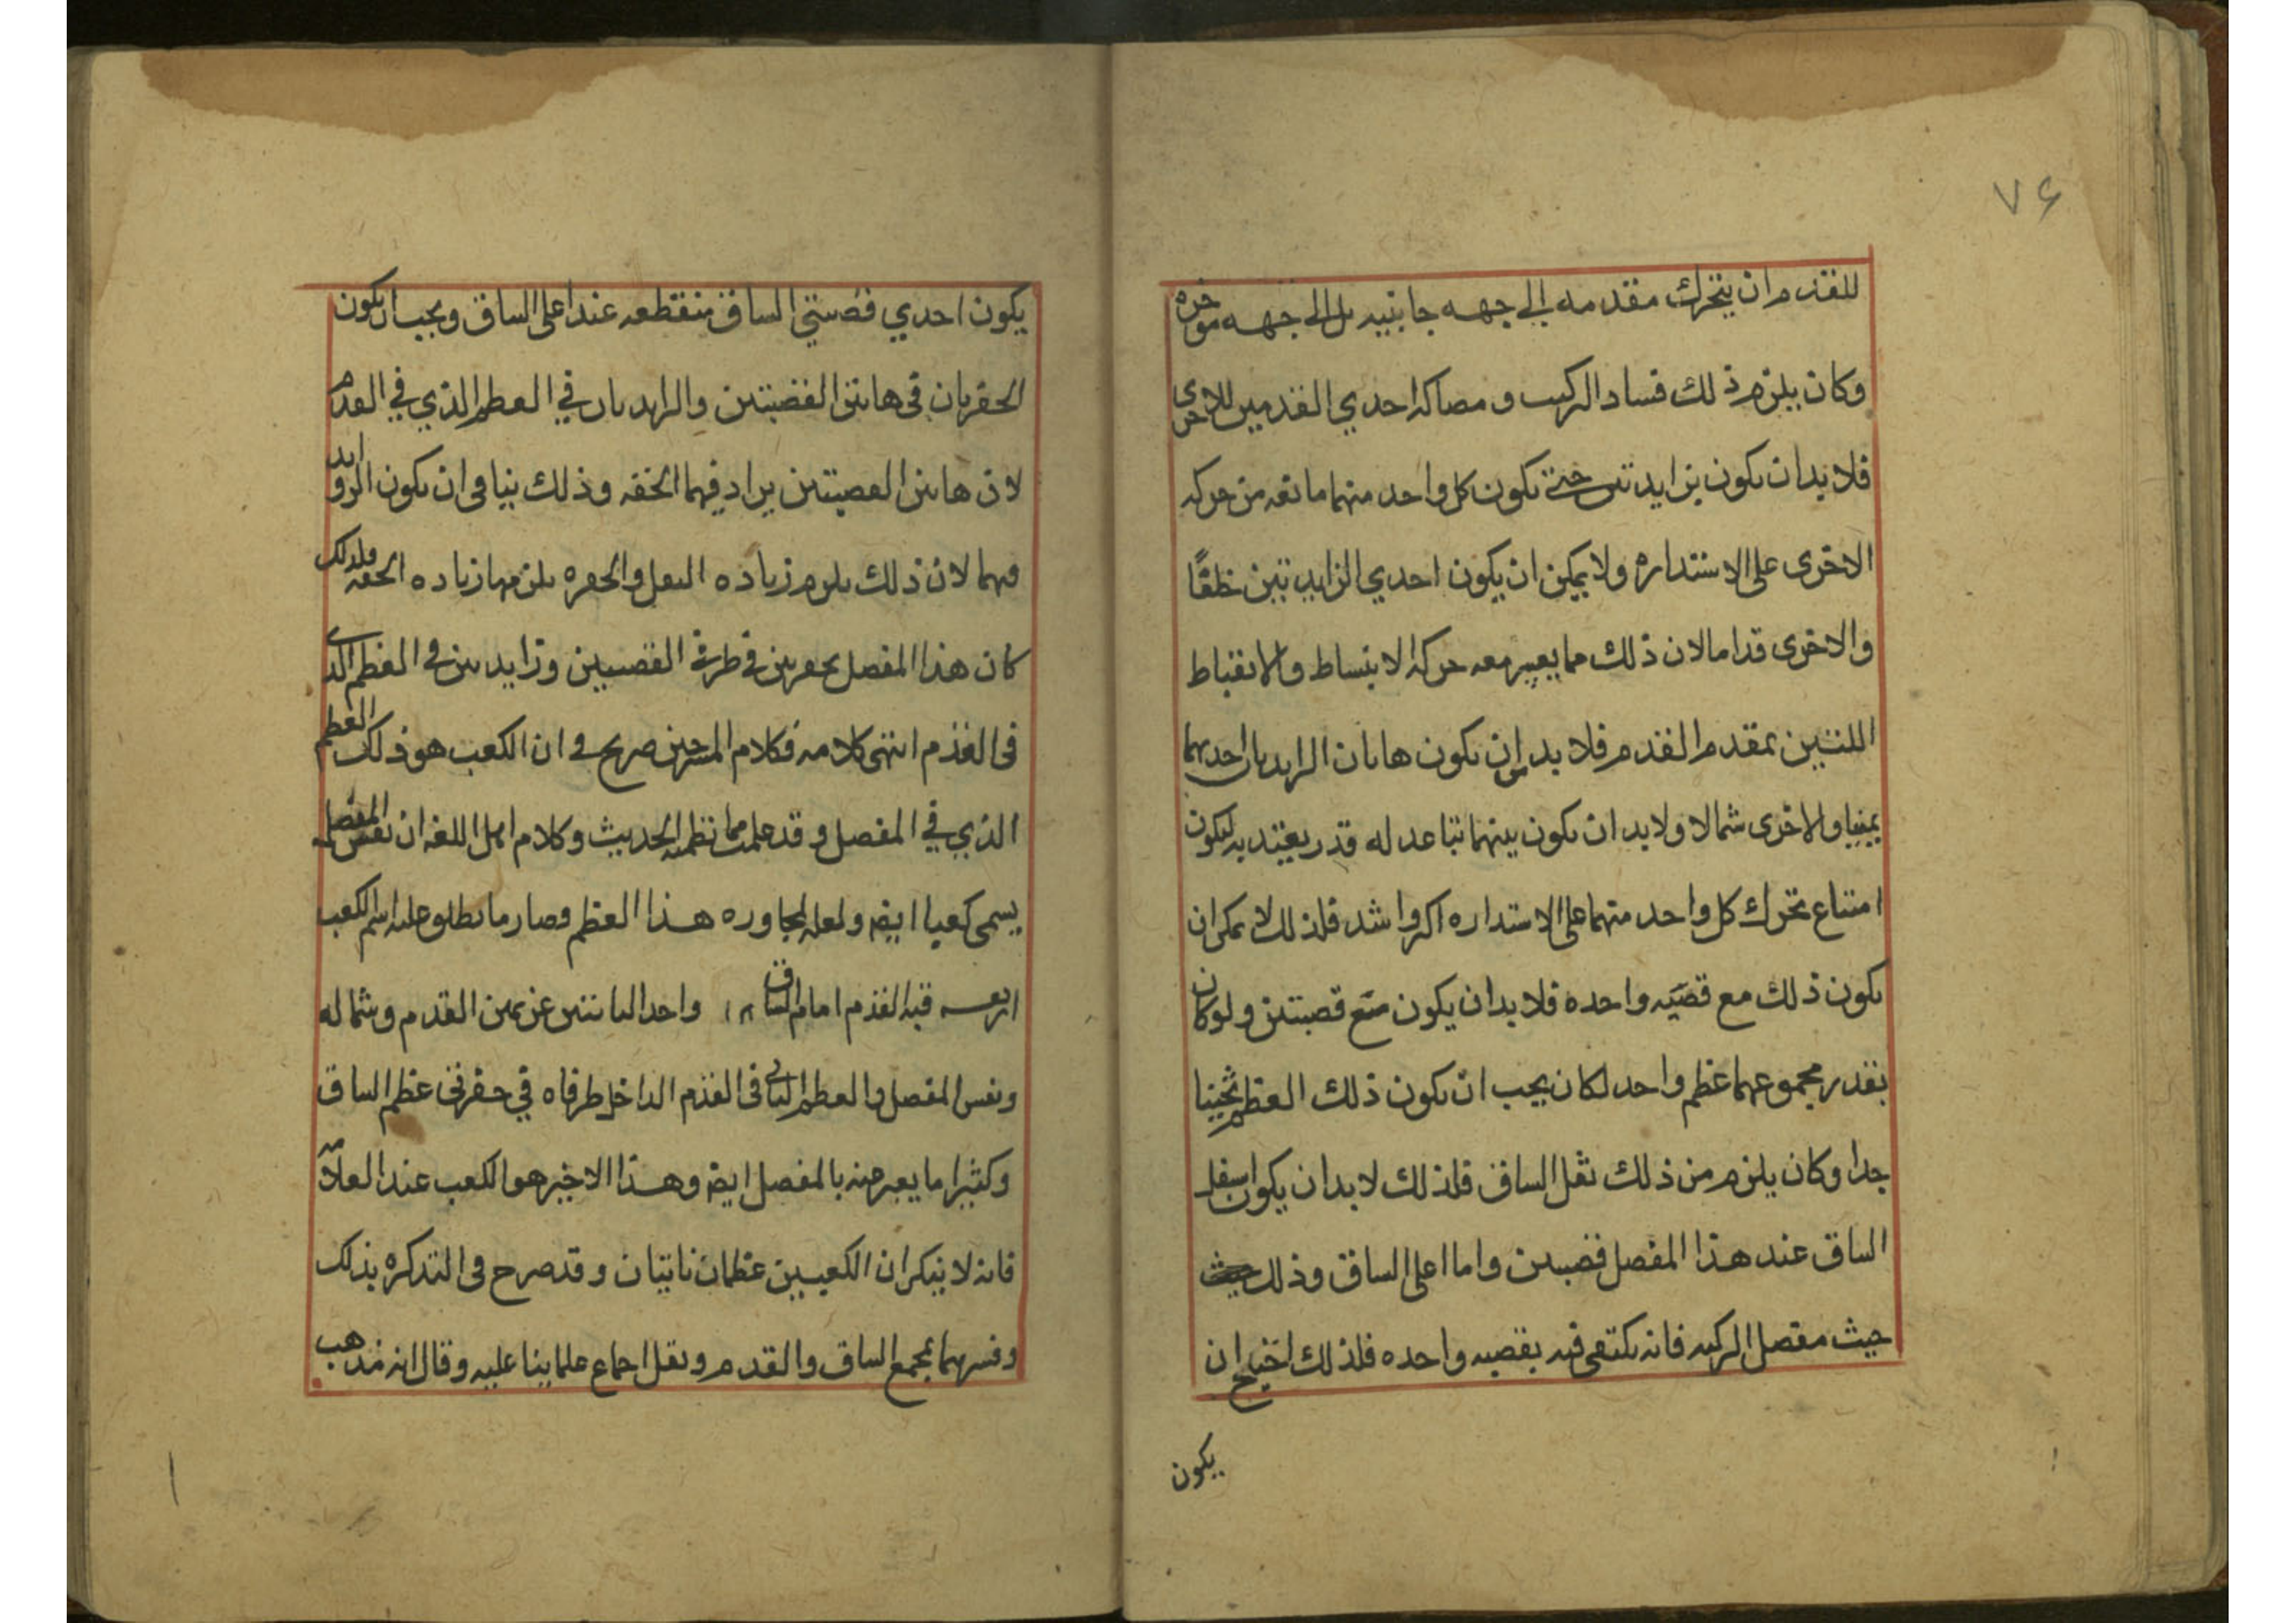 ٧٦
للقدم ان يتحرك مقدمه الى جهه جانبيه بل الى جهه موخره
وكان يلزم ذلك فساد التركيب و مصاكه احدي القدمين للاخرى
فلا بد ان يكون بزايدتين حتى يكون كل واحد منهما مانعه من حركه
الاخرى على الاستداره ولا يمكن ان يكون احدي الزايدتين خلفًا
والاخرى قداما لان ذلك مما يعسر معه حركه الانبساط والانقباط
اللتين بمقدم القدم فلا بد من ان يكون هاتان الزايدتان احديهما
يمينا والاخرى شمالا ولا بد ان يكون بينهما تباعد له قدر يعتد به ليكون
امتناع تحرك كل واحد منهما على الاستداره اكثر واشد فلذلك لا يمكن ان
يكون ذلك مع قصبه واحده فلا بد ان يكون مع قصبتين ولو كان
بقدر مجموعهما عظم واحد لكان يجب ان يكون ذلك العظم ثخينا
جدا وكان يلزم من ذلك ثقل الساق فلذلك لا بد ان يكون اسفل
الساق عند هذا المفصل قصبتين واما اعلى الساق وذلك حيث
حيث مفصل الركبه فانه يكتفى فيه بقصبه واحده فلذلك احتيج ان
يكون
يكون احدي قصبتي الساق منقطعه عند اعلى الساق ويجب ان يكون
الحفرتان في هاتين القصبتين والزايدتان في العظم الذي في القدم
لان هاتين القصبتين يراد فيهما الخفه وذلك ينافى ان يكون الزوايد
فيهما لان ذلك يلزم زياده الثقل والحفره يلزمها زياده الخفه فلذلك
كان هذا المفصل بحفرتين في طرفي القصبتين وزايدتين في العظم الذى
فى القدم انتهى كلامه فكلام المشرحين صريح في ان الكعب هو ذلك العظم
الذي في المفصل وقد علمت مما تظمنه الحديث وكلام اهل اللغه ان نفس المفصل
يسمى كعبا ايضا ولعله لمجاوره هذا العظم فصار ما يطلق عليه اسم الكعب
اربعه قبه القدم امام الساق واحد الناتئين عن يمين القدم وشماله
ونفس المفصل والعظم الناتى فى القدم الداخل طرفاه في حفرتى عظم الساق
وكثيرا ما يعبر عنه بالمفصل ايضا وهذا الاخير هو الكعب عند العلامه
فانه لا ينكر ان الكعبين عظمان ناتيان وقد صرح فى التذكره بذلك
وفسرهما بمجمع الساق والقدم ونقل اجماع علماينا عليه وقال انه مذهب